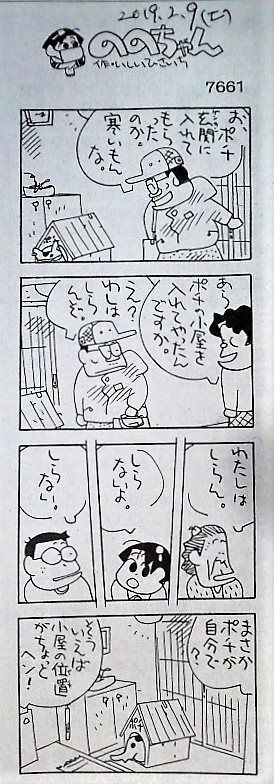 2019.2.9(土)
ののちゃん
作・いしいひさいち
7661
お、ポチ
玄関に
入れて
もらった
のか。
寒いもん
な。
あら
ポチの小屋を
入れてやったん
ですか。
え?
わしは
しら
んぞ。
わたしは
しらん。
しら
ないよ。
しら
ない。
まさか
ポチが
自分で
?
そう
いえば
小屋の位置
がちょっと
ヘン!
ポチ